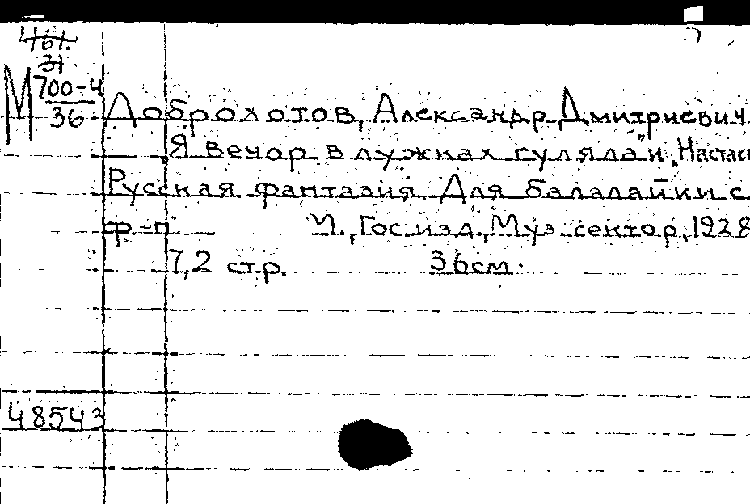 461.
31
М 700-4
36
Доброхотов, Александр Дмитриевич.
"Я вечор в лужках гуляла" и "Настас
Русская фантазия. Для балалайки с
ф-п
М., Гос. изд., Муз. сектор, 1928
7,2 стр. 36см.
48543